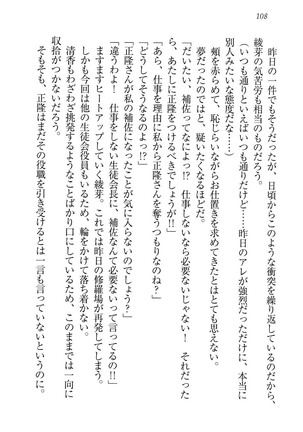 108
昨日の一件でもそうだったが、日頃からこのような衝突を繰り返しているのだから、
綾芽の気苦労も相当のものだろう。
（いつも通りといえばいつも通りだけど……昨日のアレが強烈だっただけに、本当に
別人みたいな態度だな……）
頬を赤らめて、恥じらいながらお仕置きを求めてきたとはとてもではないが思えない。
夢だったのではと、疑いたくなるほどだ。
「だいたい、補佐ってなによ!?　仕事しないなら必要ないじゃない！　それだった
ら、あたしに正隆をつけるべきでしょうが!!」
「あら、仕事を理由に私から正隆さんを奪うつもりなのね？」
「どうしてそうなるのよ!?」
「正隆さんが私の補佐になったことが気に入らないのでしょう？」
「違うわよ！　仕事をしない生徒会長に、補佐なんて必要ないって言ってるの!!」
ますますヒートアップしていく綾芽。これでは昨日の修羅場が再発してしまう。
しかも今回は他の生徒会役員もいるため、輪をかけて落ち着かない。
清香もわざわざ挑発するようなことばかり口にしているため、このままでは一向に
収拾がつかないだろう。
そもそも、正隆はまだその役職を引き受けるとは一言も言っていないのだ。